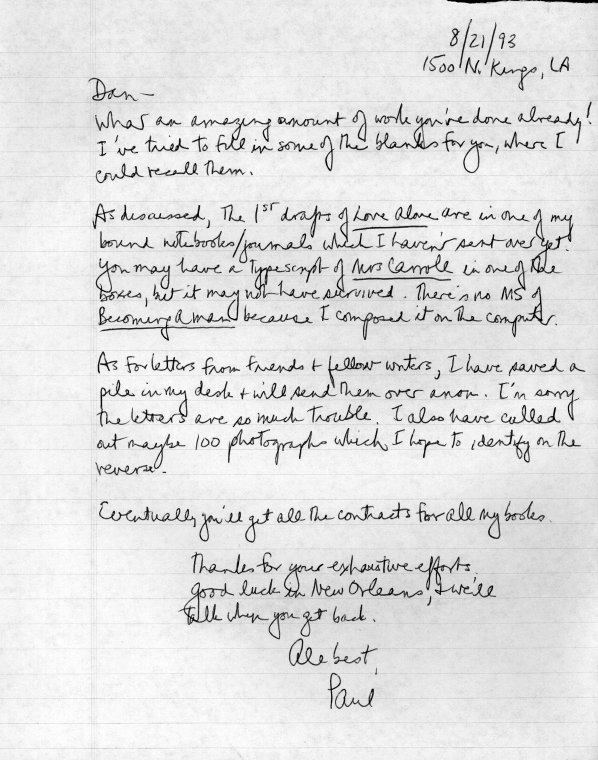 8/21/93
1500 N. Kings, LA
Dan—
What an amazing amount of work you've done already!
I've tried to fill in some of the blanks for you, where I
could recall them.
As discussed, the 1st drafts of Love Alone are in one of my
bound notebooks/journals which I haven't sent over yet.
You may have a typescript of Mrs Carroll in one of the
boxes, but it may not have survived. There's no MS of
Becoming a man because I composed it on the computer.
As for letters from friends + fellow writers, I have saved a
pile in my desk + will send them over anon. I'm sorry
the letters are so much trouble. I also have culled
out maybe 100 photographs which I hope to identify on the
reverse.
Eventually you'll get all the contracts for all my books.
Thanks for your exhaustive efforts.
Good luck in New Orleans, & we'll
talk when you get back.
All best,
Paul